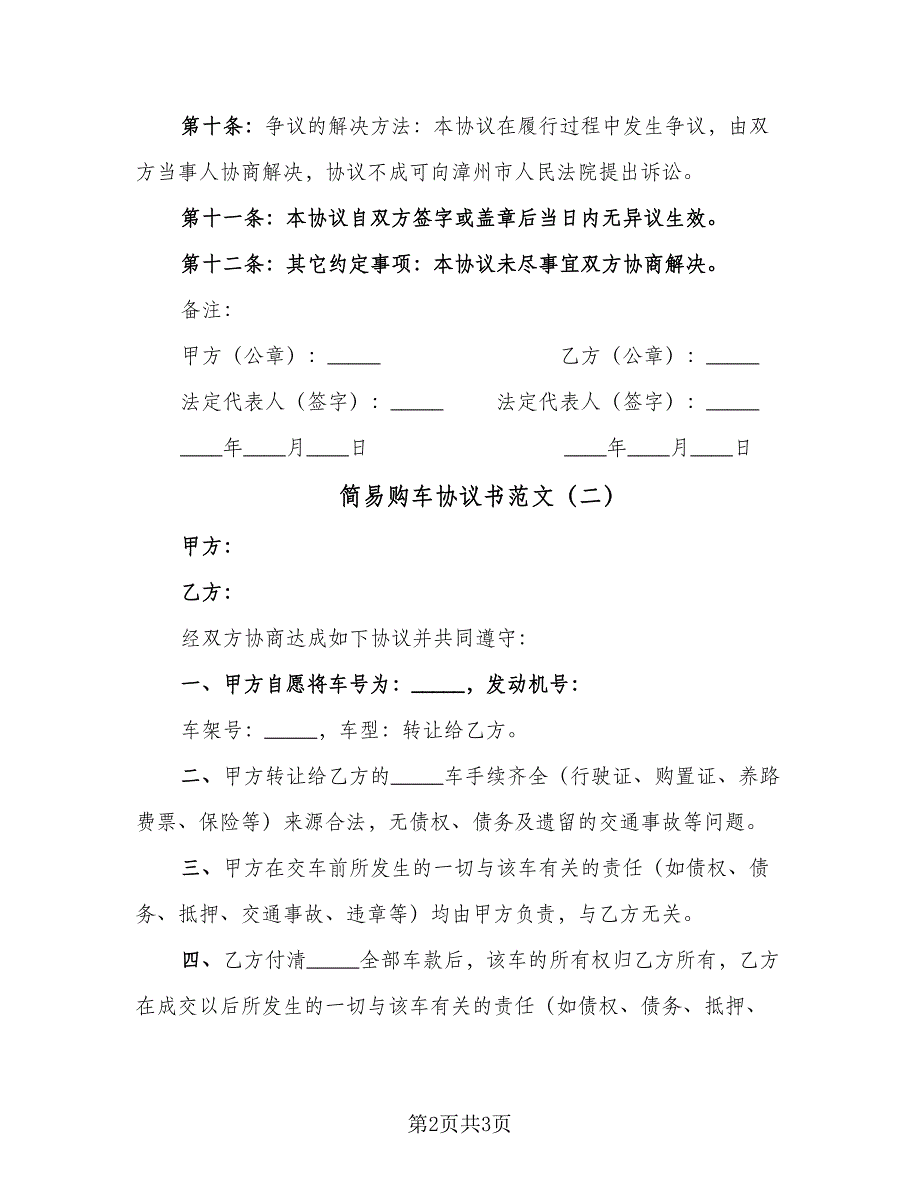 第十条：争议的解决方法：本协议在履行过程中发生争议，由双
方当事人协商解决，协议不成可向漳州市人民法院提出诉讼。
第十一条：本协议自双方签字或盖章后当日内无异议生效。
第十二条：其它约定事项：本协议未尽事宜双方协商解决。
备注：
甲方（公章）：_____ 乙方（公章）：_____
法定代表人（签字）：_____ 法定代表人（签字）：_____
____年____月____日 ____年____月____日
简易购车协议书范文（二）
甲方：
乙方：
经双方协商达成如下协议并共同遵守：
一、甲方自愿将车号为：_____，发动机号：
车架号：_____，车型：转让给乙方。
二、甲方转让给乙方的_____车手续齐全（行驶证、购置证、养路
费票、保险等）来源合法，无债权、债务及遗留的交通事故等问题。
三、甲方在交车前所发生的一切与该车有关的责任（如债权、债
务、抵押、交通事故、违章等）均由甲方负责，与乙方无关。
四、乙方付清_____全部车款后，该车的所有权归乙方所有，乙方
在成交以后所发生的一切与该车有关的责任（如债权、债务、抵押、
第2页共3页